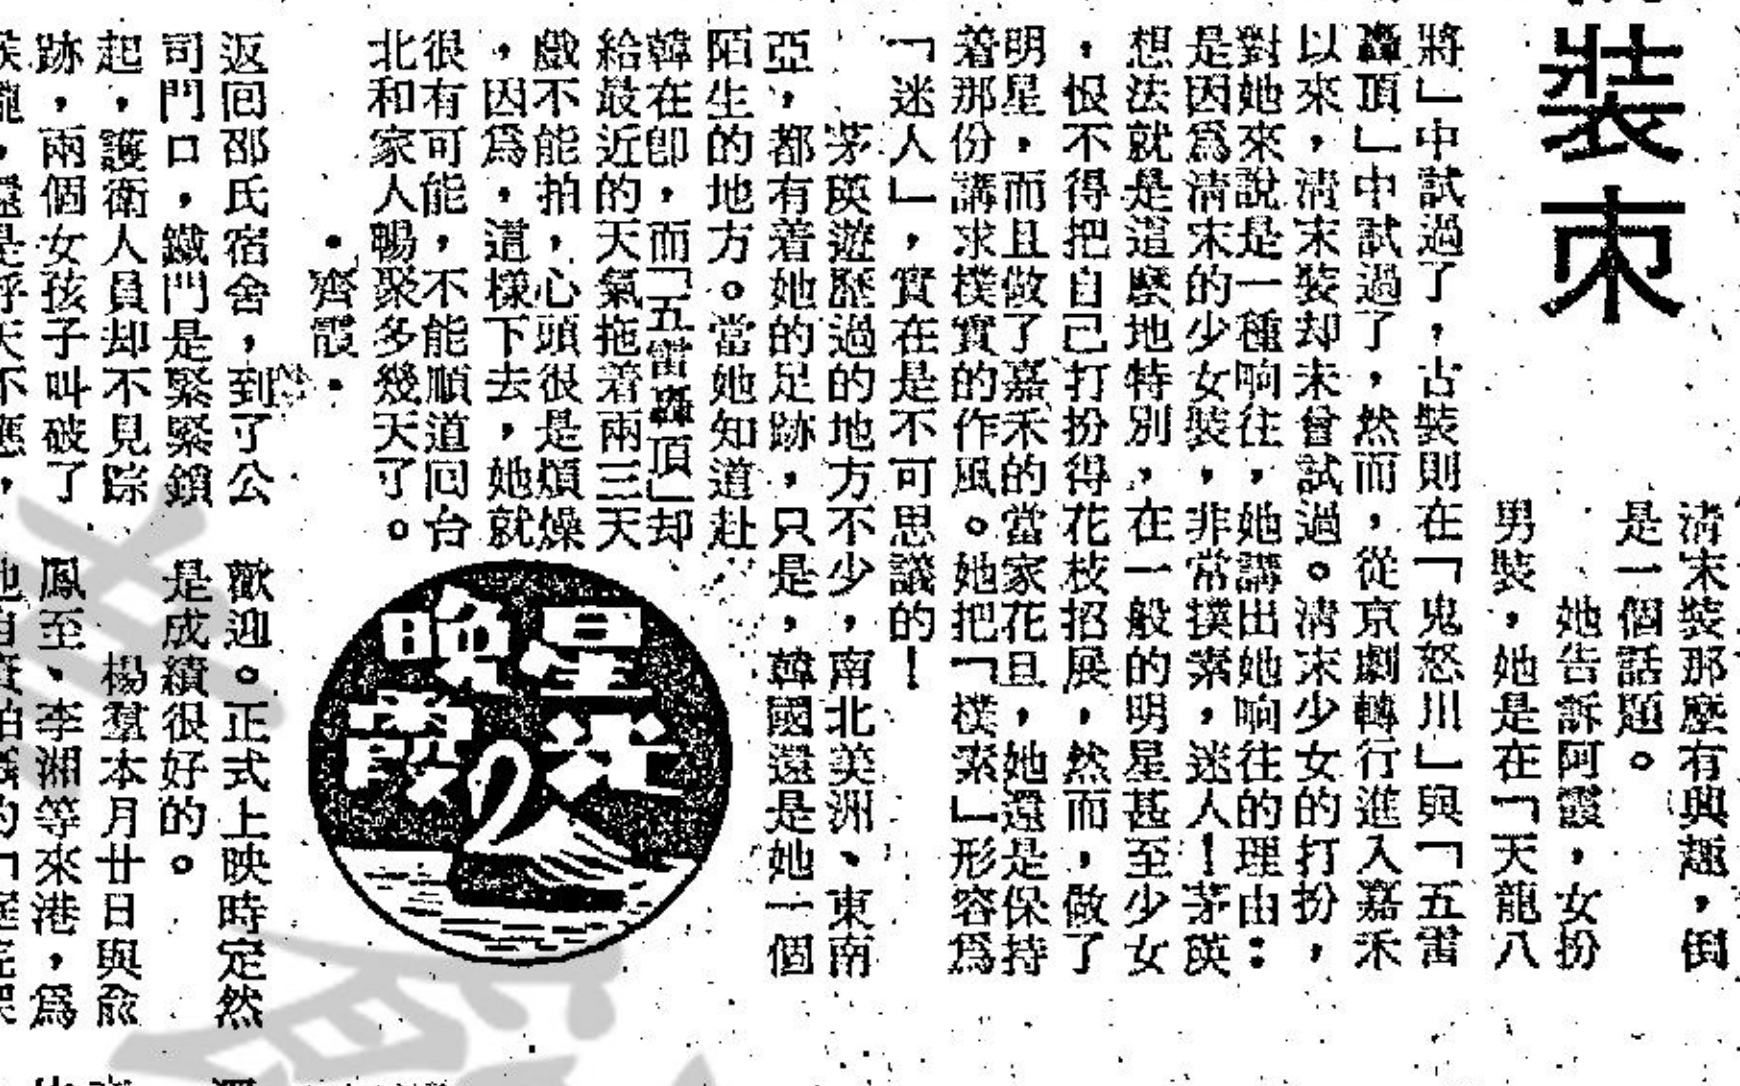 裝束
清末裝那麼有興趣，倒
是一個話題。
她告訴阿霞，女扮
男裝，她是在「天龍八
將」中試過了，古裝則在「鬼怒川」與「五雷
轟頂」中試過了，然而，從京劇轉行進入嘉禾
以來，清末裝却未曾試過。清末少女的打扮，
對她來說是一種响往，她講出她响往的理由：
是因爲清末的少女裝，非常撲素，迷人！茅瑛
想法就是這麼地特別，在一般的明星甚至少女
，恨不得把自己打扮得花枝招展，然而，做了
明星，而且做了嘉禾的當家花旦，她還是保持
着那份講求樸實的作風。她把「樸素」形容爲
「迷人」，實在是不可思議的！
茅瑛遊歷過的地方不少，南北美洲、東南
亞，都有着她的足跡，只是，韓國還是她一個
陌生的地方。當她知道赴
韓在卽，而「五雷轟頂」却
給最近的天氣拖着兩三天
戲不能拍，心頭很是煩燥
，因爲，這樣下去，她就
很有可能，不能順道回台
北和家人暢聚多幾天了。
・齊霞・
星光
晚霞
返回邵氏宿舍，到了公
司門口，鐵門是緊緊鎖
起，護衛人員却不見踪
跡，兩個女孩子叫破了
歡迎。正式上映時定然
是成績很好的。
楊羣本月廿日與兪
鳳至、李湘等來港，爲